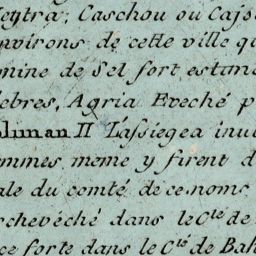 Neytra; Caschou ou Cajs
nvirons de cette ville qu
mine de Sel fort estime
lebres, Agria Eveché p
oliman II l'assiegea inu
emmes meme y firent d
ale du comté de ce noms
rchevéché dans le C.té de
ce forte dans le C.té de Bah